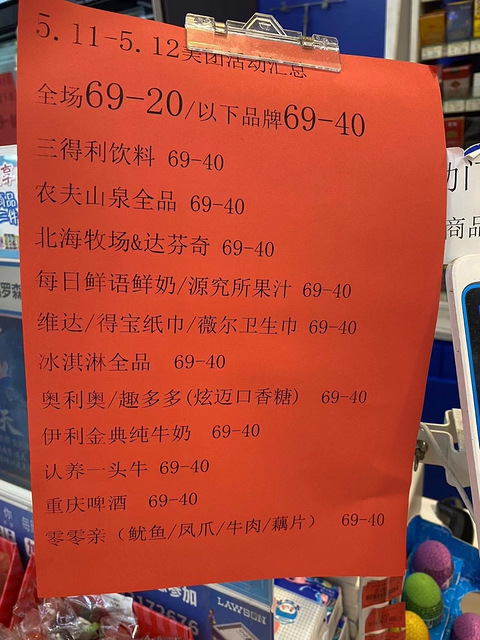 5.11-5.12美团活动汇总
全场69-20/以下品牌69-40
三得利饮料 69-40
农夫山泉全品 69-40
北海牧场&达芬奇 69-40
每日鲜语鲜奶/源究所果汁 69-40
维达/得宝纸巾/薇尔卫生巾 69-40
冰淇淋全品 69-40
奥利奥/趣多多(炫迈口香糖) 69-40
伊利金典纯牛奶 69-40
认养一头牛 69-40
重庆啤酒 69-40
零零亲（鱿鱼/凤爪/牛肉/藕片） 69-40
商品
LAWSON